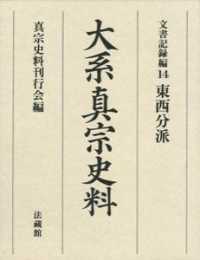 文書記録編14 東西分派
大系真宗史料
真宗史料刊行会編
法藏館